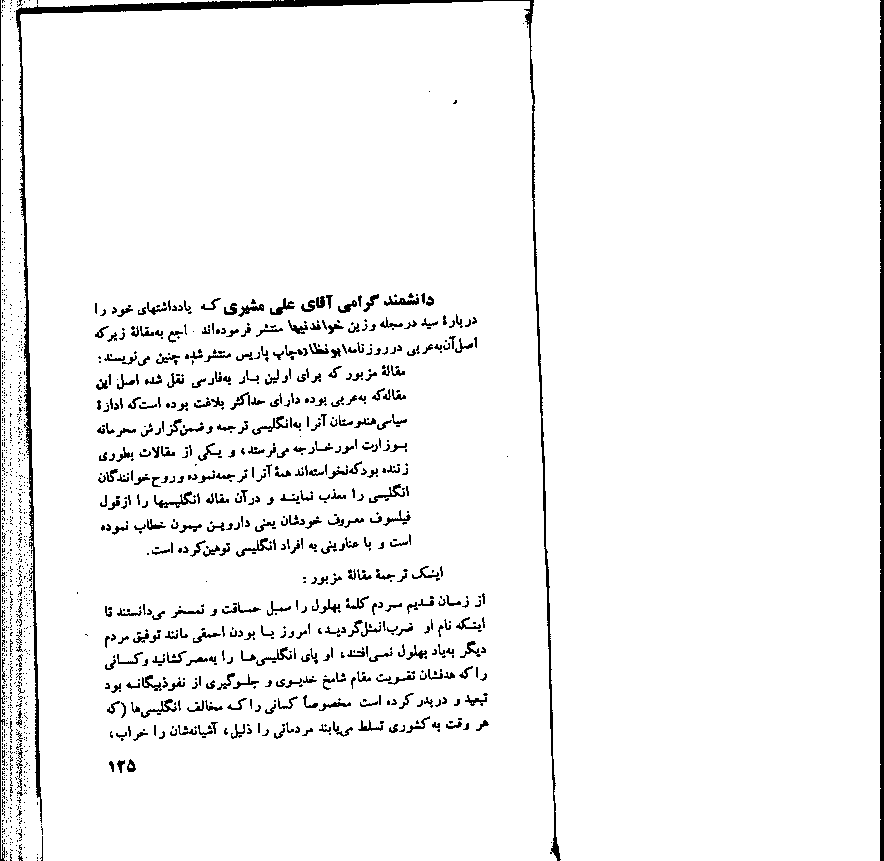 دانشمند گرامی آقای علی مشیری که یادداشتهای خود را
دربارهٔ سید درمجله وزین خواندنیها منتشر فرموده‌اند اجع به‌مقالهٔ زیرکه
اصل‌آن‌به‌عربی درروزنامه‌ابونظاره‌چاپ پاریس منتشرشده چنین می‌نویسند:
مقالهٔ مزبور که برای اولین بار به‌فارسی نقل شده اصل این
مقاله‌که به‌عربی بوده دارای حداکثر بلاغت بوده است‌که ادارهٔ
سیاسی‌هندوستان آنرا به‌انگلیسی ترجمه وضمن‌گزارش محرمانه
بوزارت امورخارجه می‌فرستد، و یکی از مقالات بطوری
زننده بودکه‌نخواسته‌اند همهٔ آنرا ترجمه‌نموده وروح‌خوانندگان
انگلیسی را معذب نمایند و درآن مقاله انگلیسیها را ازقول
فیلسوف معروف خودشان یعنی داروین میمون خطاب نموده
است و با عناوینی به افراد انگلیسی توهین‌کرده است.
اینک ترجمهٔ مقالهٔ مزبور :
از زمان قدیم مردم کلمهٔ بهلول را سمبل حماقت و تمسخر می‌دانستند تا
اینکه نام او ضرب‌المثل‌گردید، امروز با بودن احمقی مانند توفیق مردم
دیگر به‌یاد بهلول نمی‌افتند، او پای انگلیسی‌ها را به‌مصرکشانید وکسانی
راکه هدفشان تقسویت مقام شامخ خدیوی و جلوگیری از نفوذبیگانه بود
تبعید و دربدر کرده است مخصوصاً کسانی راکه مخالف انگلیسی‌ها (که
هر وقت به‌کشوری تسلط می‌یابند مردمانی را ذلیل، آشیانه‌شان را خراب،
۱۲۵